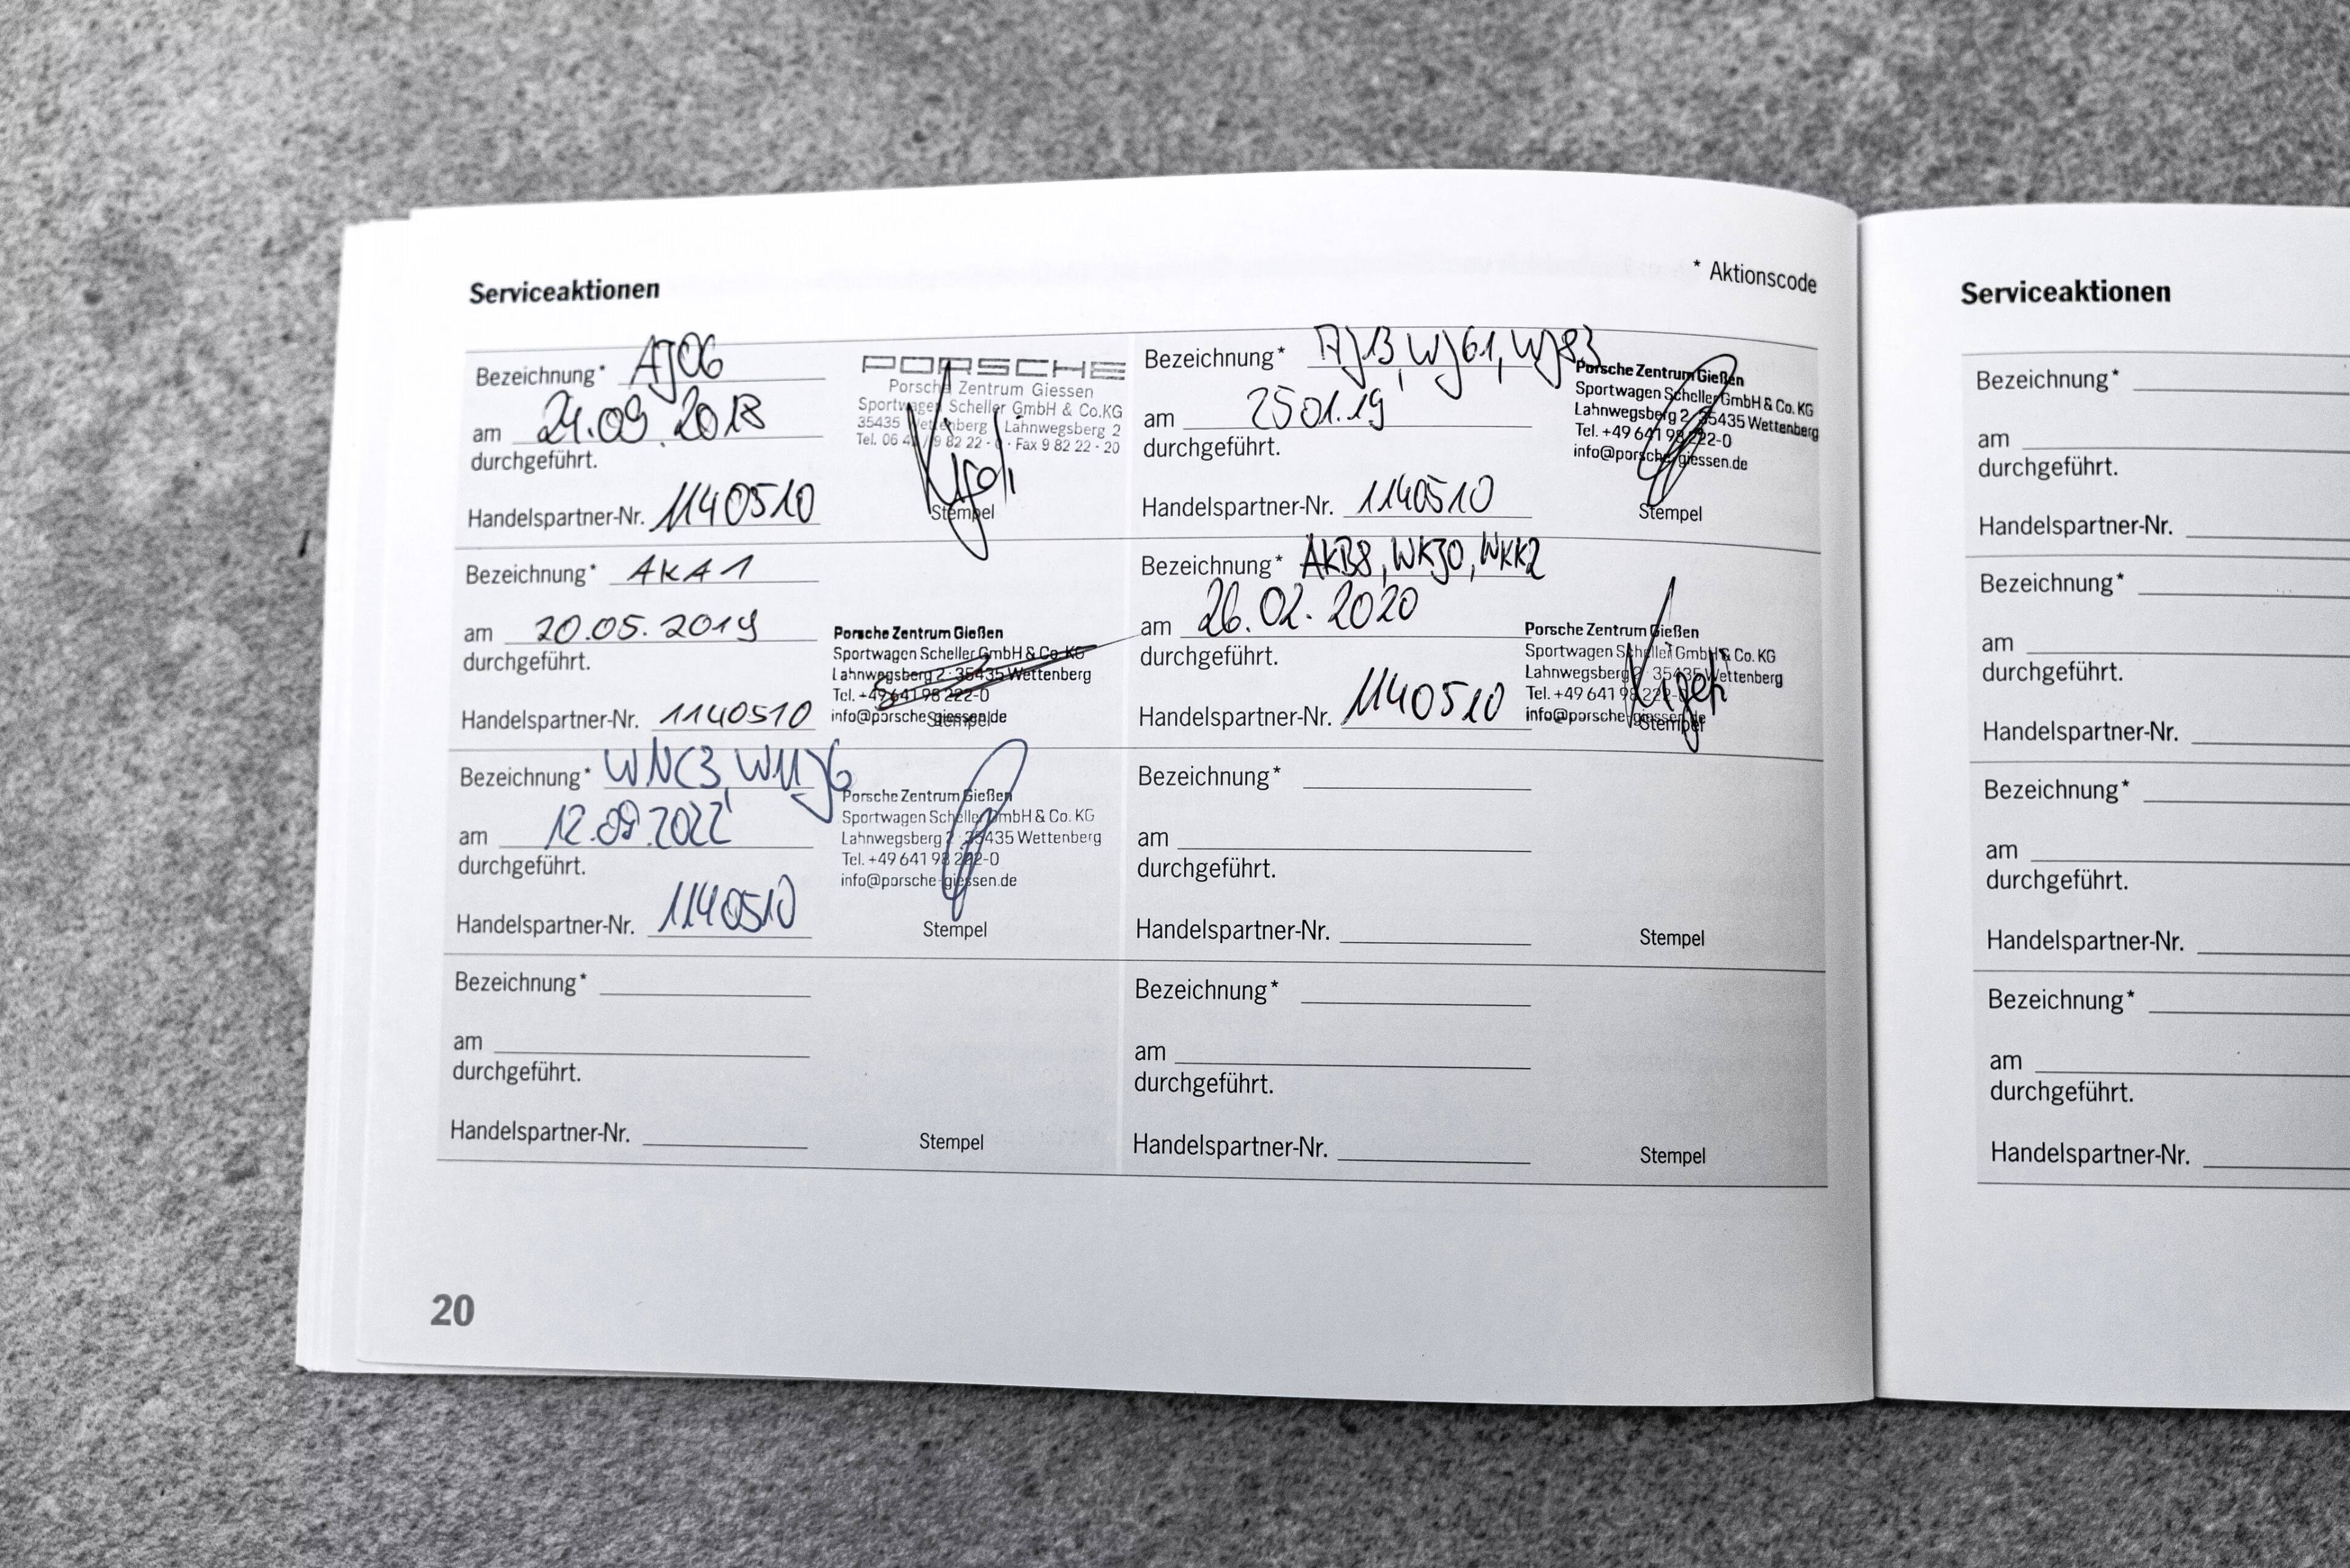 Serviceaktionen
* Aktionscode
Bezeichnung* AJ06
am 24.09.2018
durchgeführt.
Handelspartner-Nr. 1140510
PORSCHE
Porsche Zentrum Giessen
Sportwagen Scheller GmbH & Co.KG
35435 Wettenberg Lahnwegsberg 2
Fax 9 82 22 - 20
Stempel
Bezeichnung* AJ13, WJ61, WJ83
am 25 01.19
durchgeführt.
Handelspartner-Nr. 1140510
Porsche Zentrum Gießen
Sportwagen Scheller GmbH & Co. KG
Lahnwegsberg 2 · 35435 Wettenberg
Tel. +49 641 98 222-0
info@porsche-giessen.de
Stempel
Bezeichnung* AKA1
am 20.05.2019
durchgeführt.
Handelspartner-Nr. 1140510
Porsche Zentrum Gießen
Sportwagen Scheller GmbH & Co. KG
Lahnwegsberg 2 · 35435 Wettenberg
Tel. +49 641 98 222-0
info@porsche-giessen.de
Stempel
Bezeichnung* AKB8, WKJ0, WKK2
am 26.02.2020
durchgeführt.
Handelspartner-Nr. 1140510
Porsche Zentrum Gießen
Sportwagen Scheller GmbH & Co. KG
Lahnwegsberg 2 · 35435 Wettenberg
Tel. +49 641 98 222-0
info@porsche-giessen.de
Stempel
Bezeichnung* WNC3,
am 12.09.2022
durchgeführt.
Handelspartner-Nr. 1140510
Porsche Zentrum Gießen
Sportwagen Scheller GmbH & Co. KG
Lahnwegsberg 2 · 35435 Wettenberg
Tel. +49 641 98 222-0
info@porsche-giessen.de
Stempel
Bezeichnung*
am
durchgeführt.
Handelspartner-Nr.
Stempel
Bezeichnung*
am
durchgeführt.
Handelspartner-Nr.
Stempel
Bezeichnung*
am
durchgeführt.
Handelspartner-Nr.
Stempel
20
Serviceaktionen
Bezeichnung*
am
durchgeführt.
Handelspartner-Nr.
Bezeichnung*
am
durchgeführt.
Handelspartner-Nr.
Bezeichnung*
am
durchgeführt.
Handelspartner-Nr.
Bezeichnung*
am
durchgeführt.
Handelspartner-Nr.